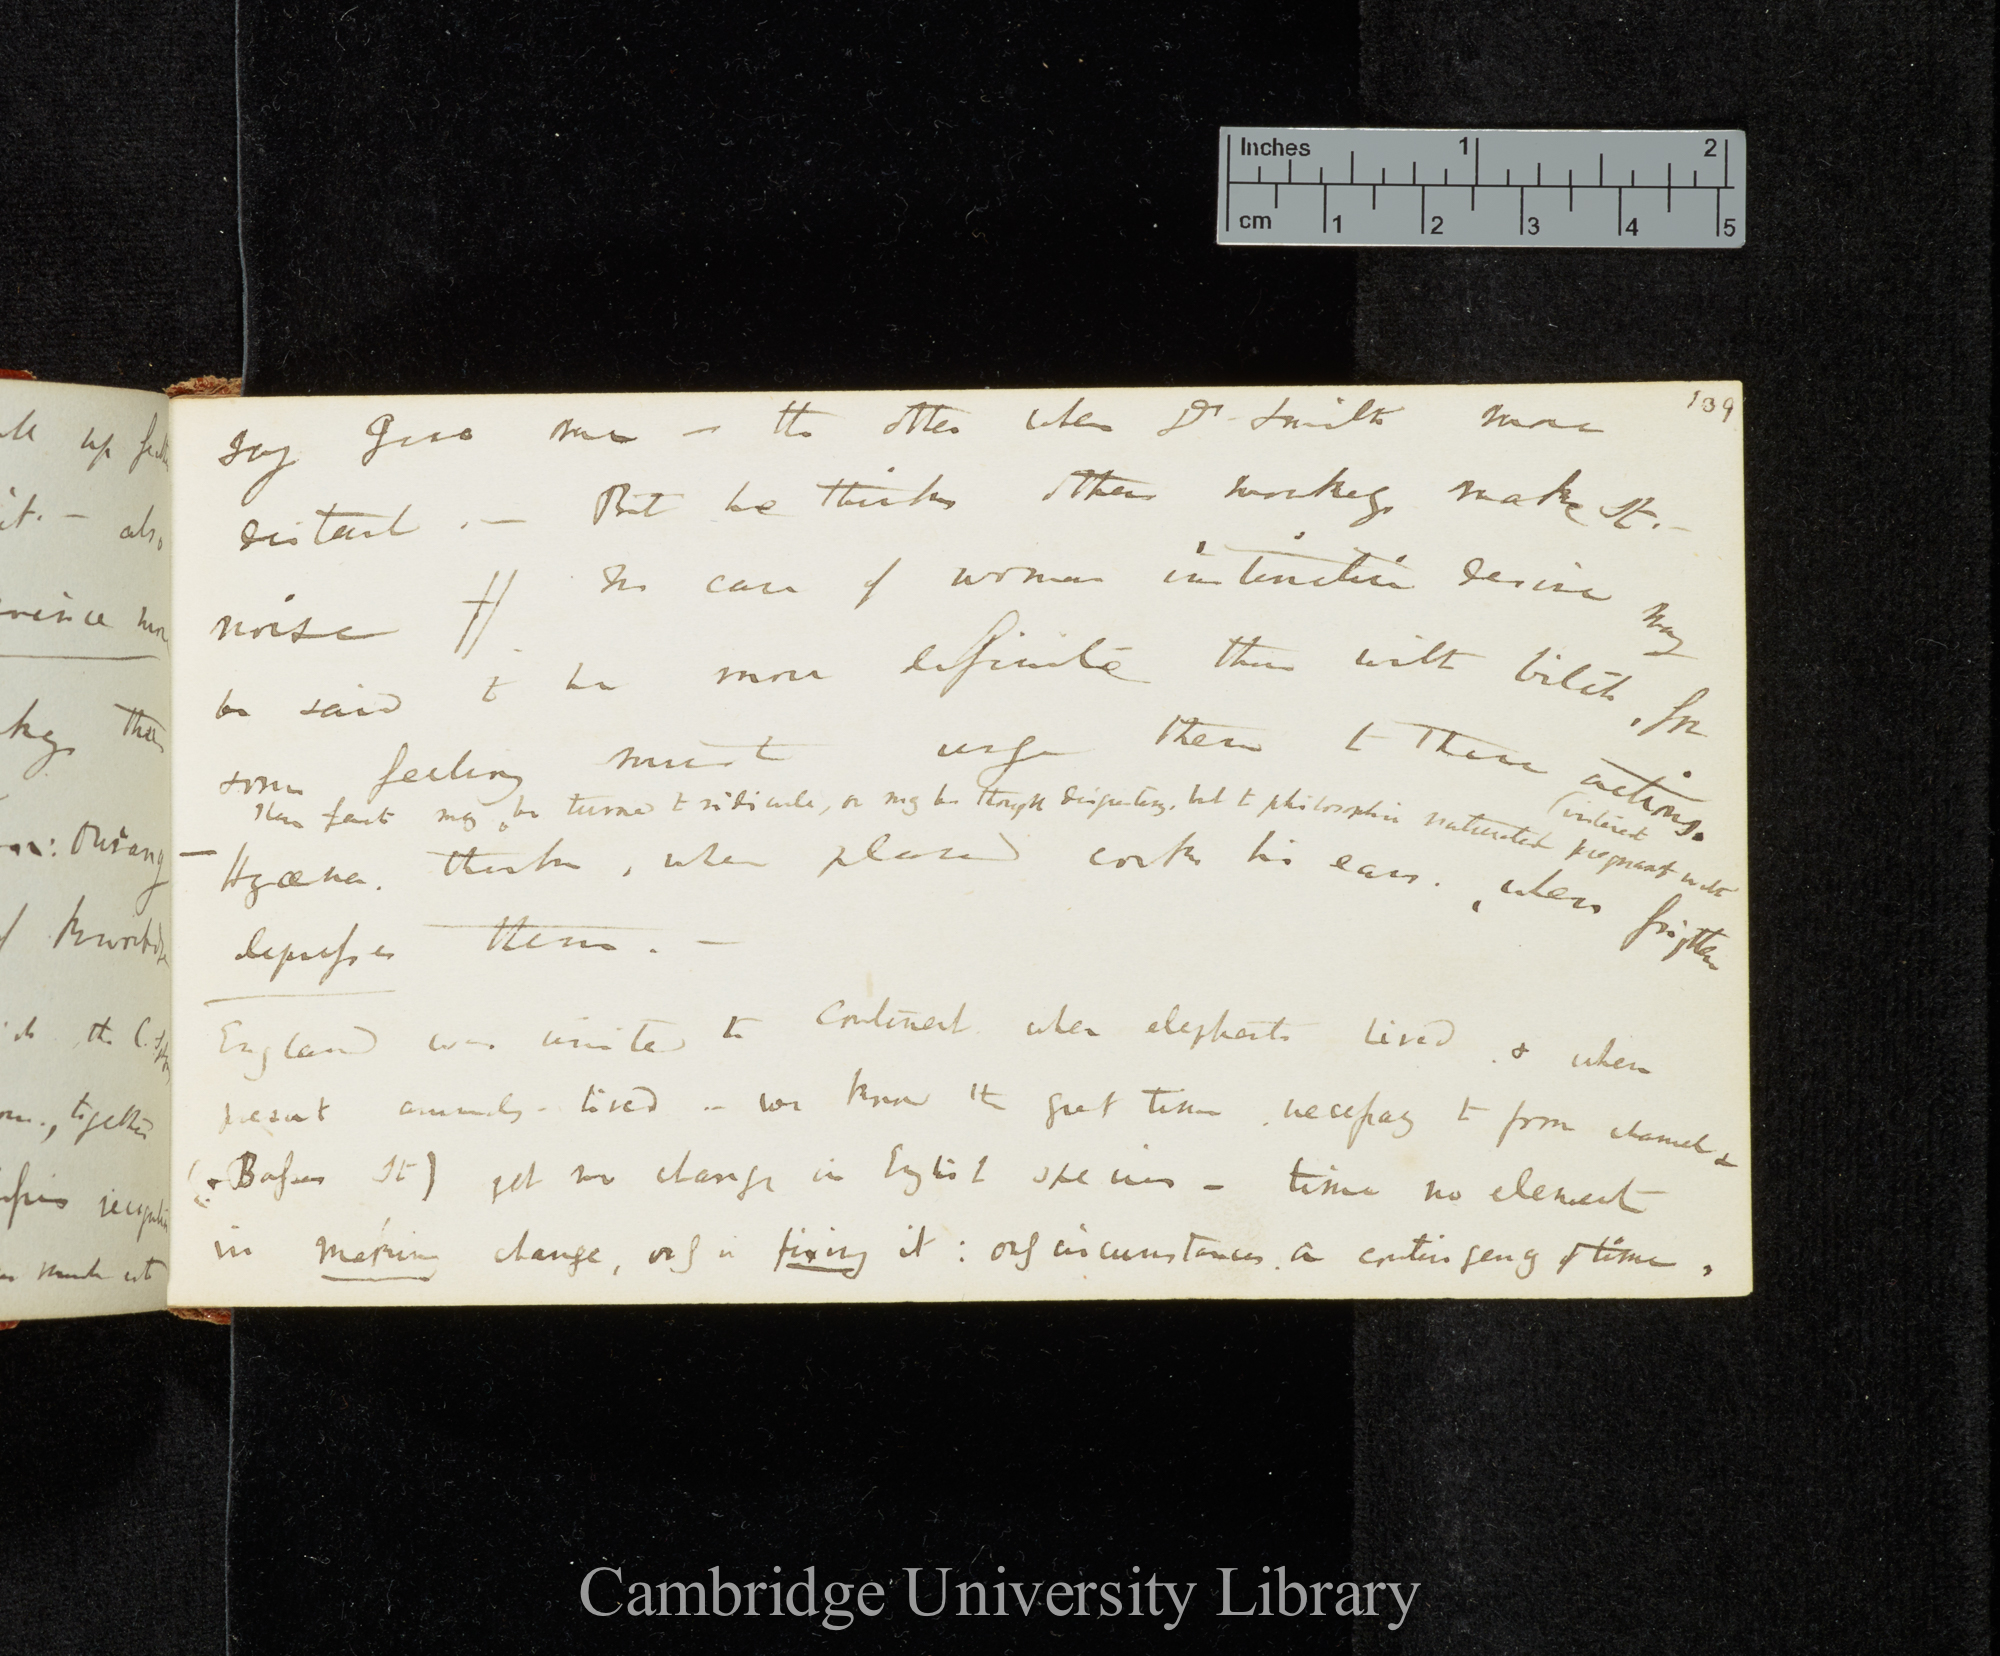 Inches 1 2
cm 1 2 3 4 5
139
say give me — the other when Dr. Smith more
distant .— But he thinks other monkeys make St. —
noise // In case of woman instinctive desire may
be said to be more definite than with bitch, for
some feeling must urge them to these actions.
These facts may be turned to ridicule, or may be thought disgusting, but to philosophic naturalist pregnant with
(interest
— Hyæna. thinks, when pleased cocks his ears. , when frighten
depresses them. —
England was united to Continent when elephants lived . & when
present animals lived — we know the great time necessary to form channel &
(& Basses St) yet no change in English species — time no element
in making change, only in fixing it : only circumstances. a contingency of time,
up
it. — also
than
Ourang
the C.
together
Cambridge University Library